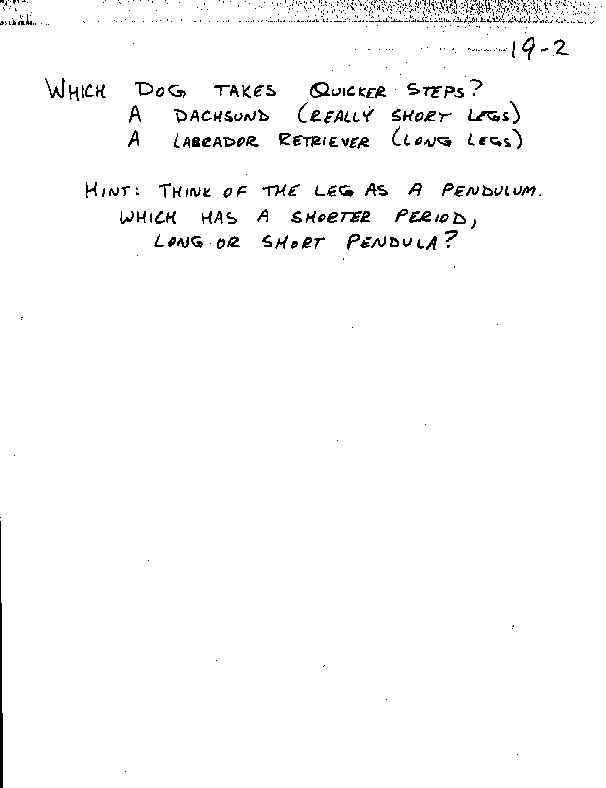 19-2
WHICH DOG TAKES QUICKER STEPS?
A DACHSUND (REALLY SHORT LEGS)
A LABRADOR RETRIEVER (LONG LEGS)
HINT: THINK OF THE LEG AS A PENDULUM.
WHICH HAS A SHORTER PERIOD,
LONG OR SHORT PENDULA?